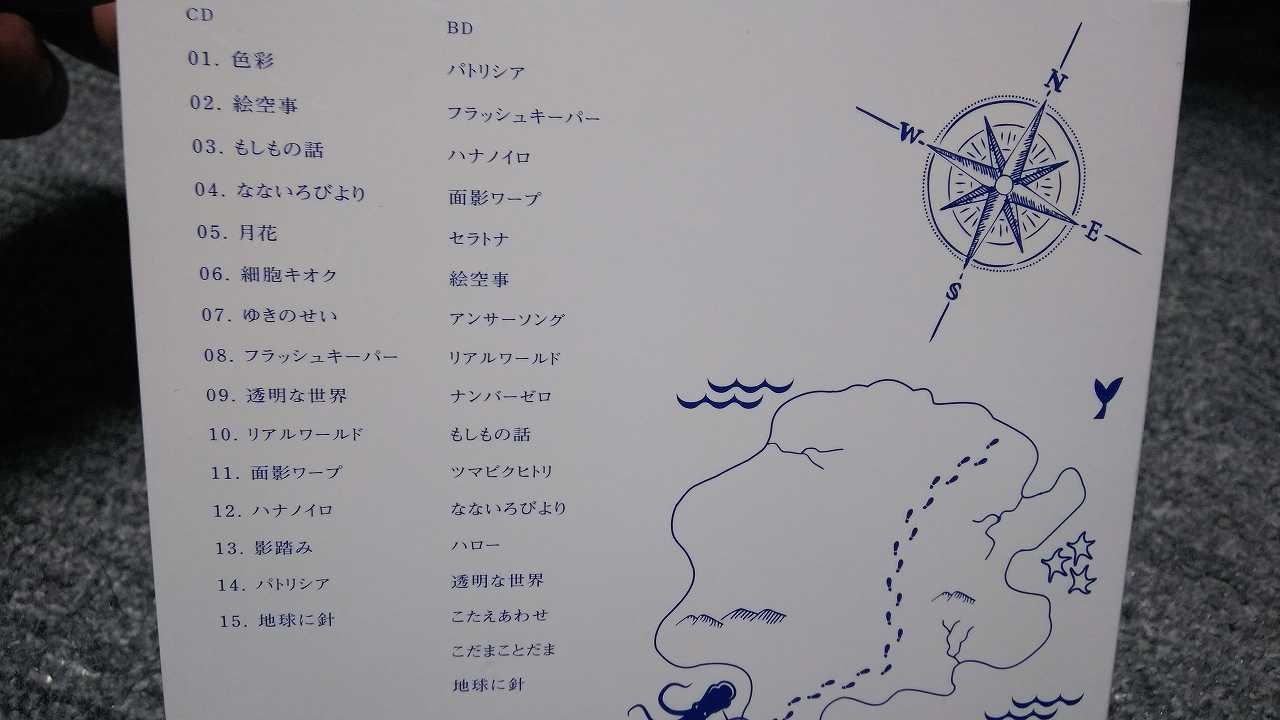 CD
01. 色彩
02. 絵空事
03. もしもの話
04. なないろびより
05. 月花
06. 細胞キオク
07. ゆきのせい
08. フラッシュキーパー
09. 透明な世界
10. リアルワールド
11. 面影ワープ
12. ハナノイロ
13. 影踏み
14. パトリシア
15. 地球に針
BD
パトリシア
フラッシュキーパー
ハナノイロ
面影ワープ
セラトナ
絵空事
アンサーソング
リアルワールド
ナンバーゼロ
もしもの話
ツマビクヒトリ
なないろびより
ハロー
透明な世界
こたえあわせ
こだまことだま
地球に針
N
W
E
S